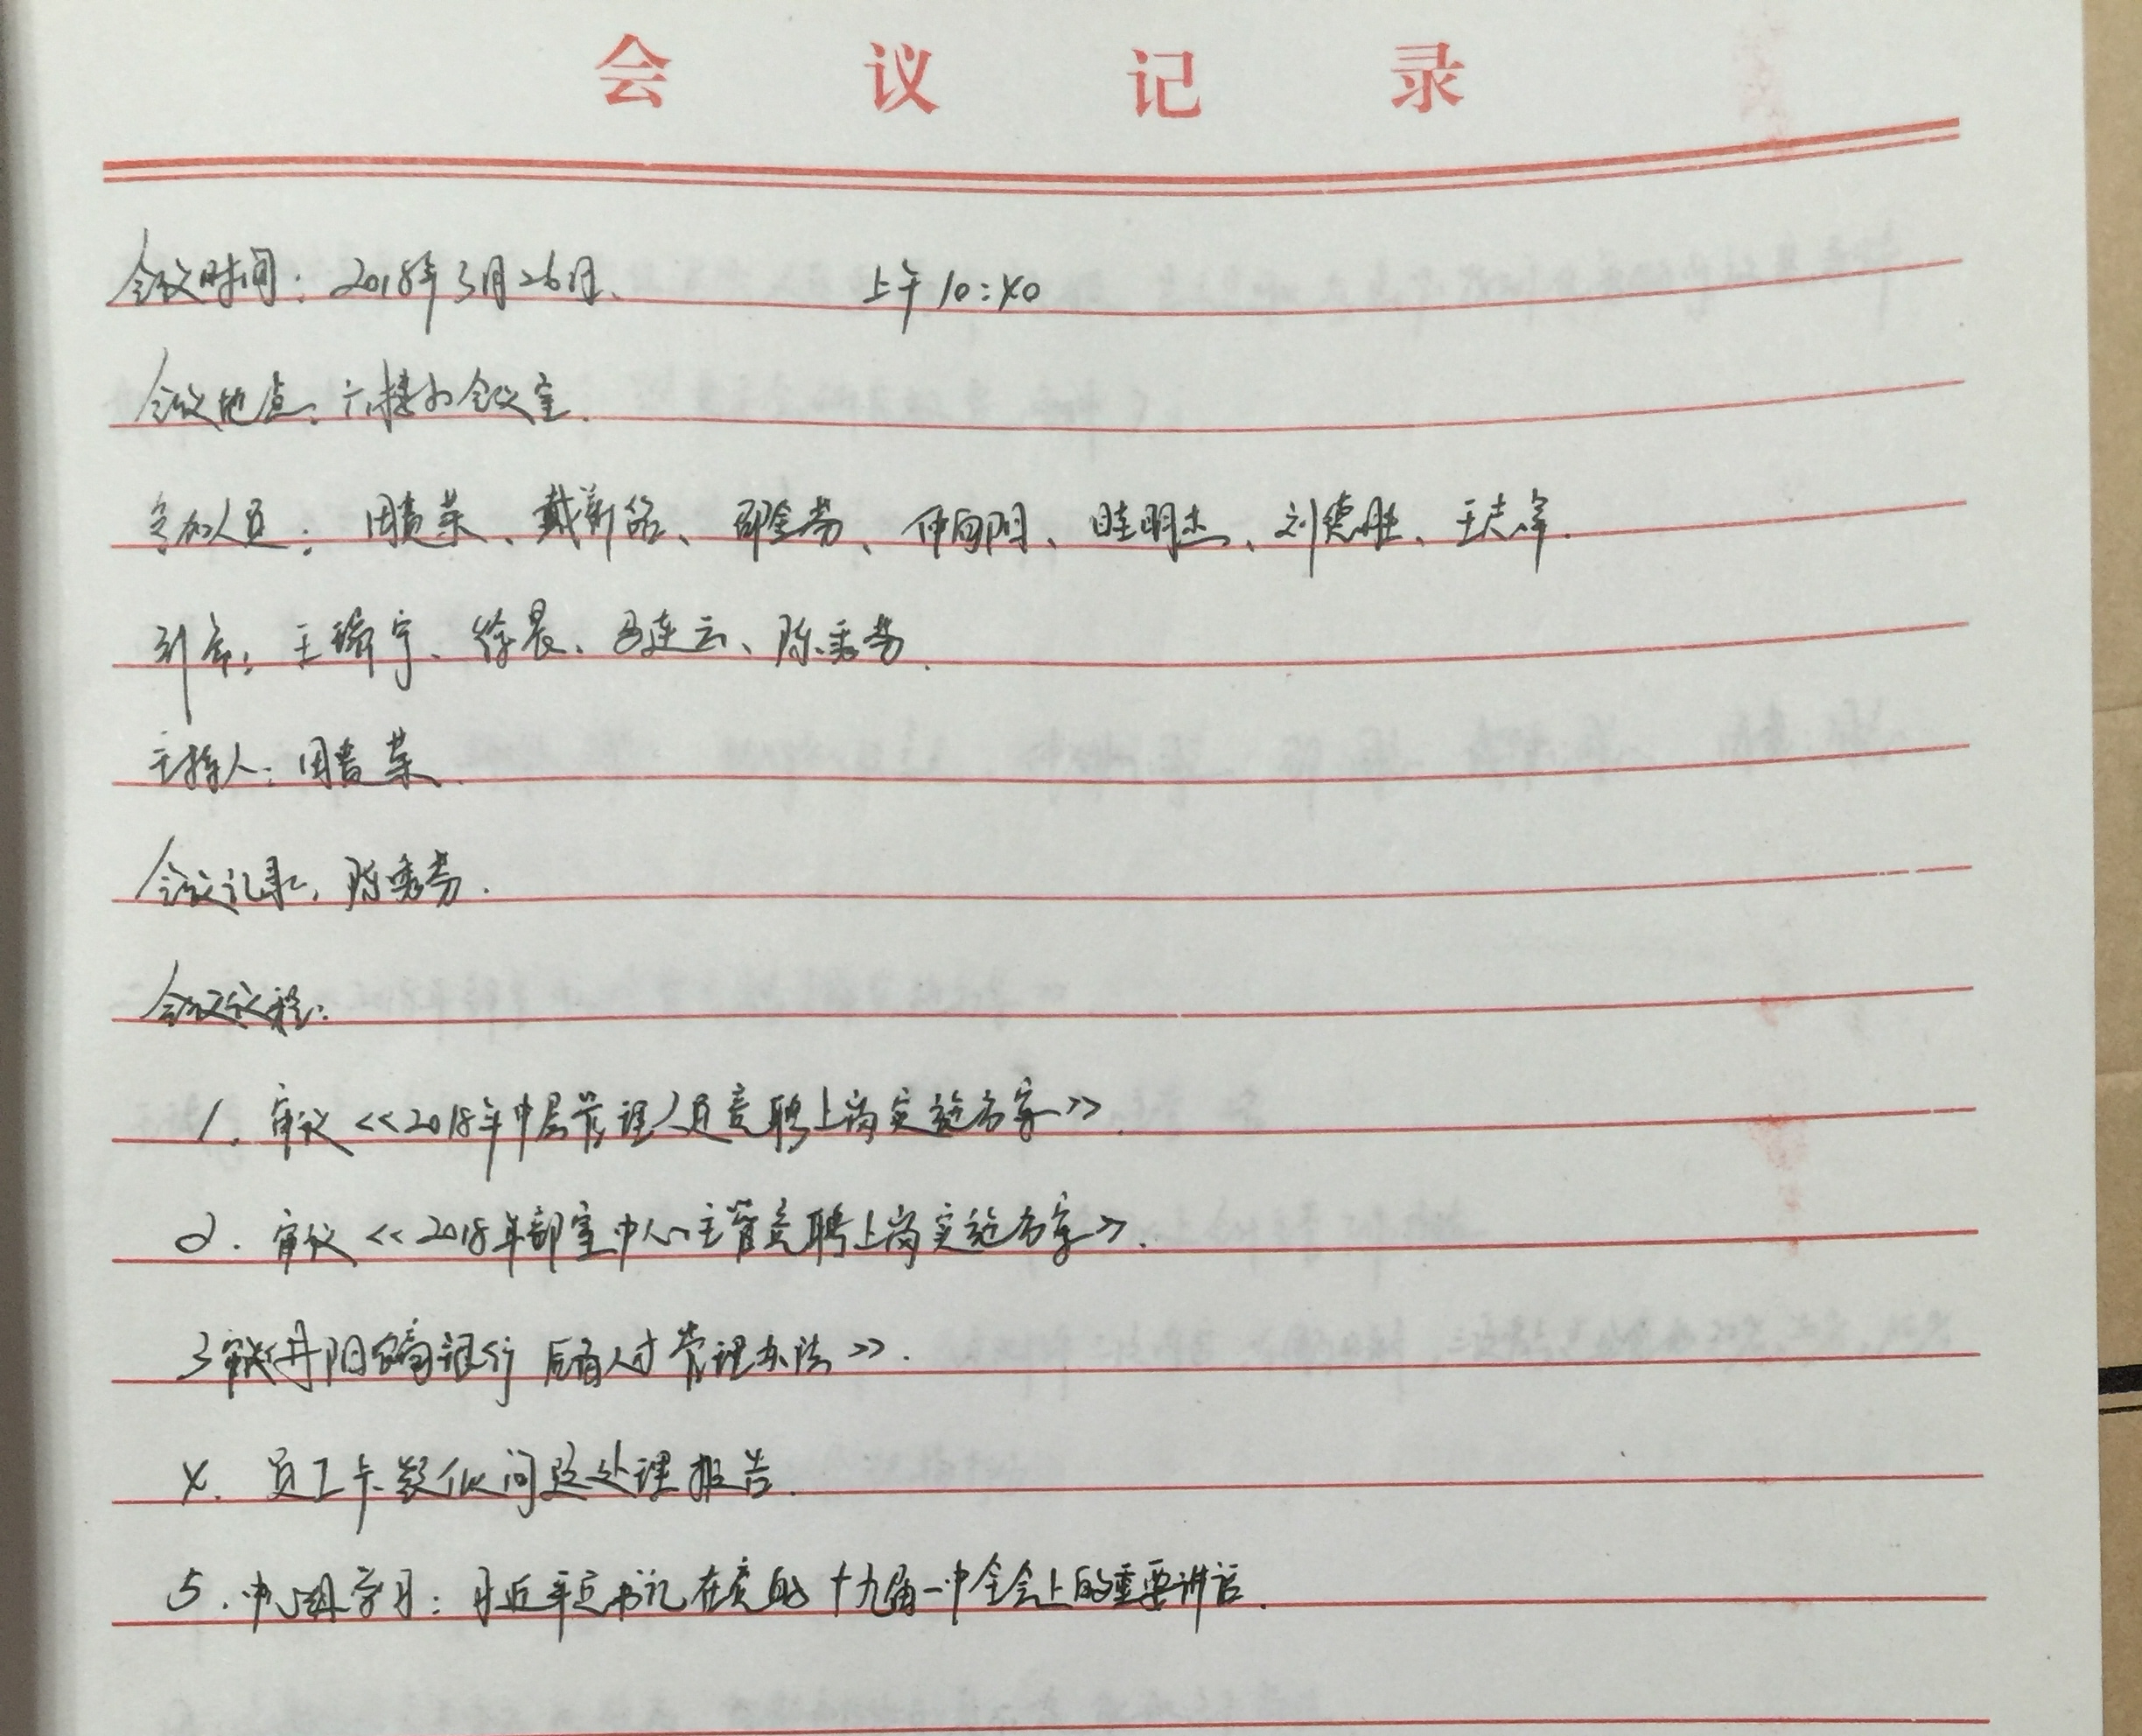 会议记录
会议时间：2018年3月26日、 上午10:40
会议地点：六楼小会议室.
参加人员：周貴荣、戴新銘、邵金芳、仲向阳、眭明杰、刘德胜、王志峰.
列席：王瑜宇、徐晨、马连云、陈秀芳.
主持人：周貴荣.
会议记录：陈秀芳.
会议议程：
1. 审议<<2018年中层管理人员竞聘上岗实施方案>>.
2. 审议<<2018年部室中心主管竞聘上岗实施方案>>.
3 审议丹阳农商银行后备人才管理办法>>.
4. 员工卡疑似问题处理报告.
5. 中心组学习：习近平总书记在党的十九届一中全会上的重要讲话.